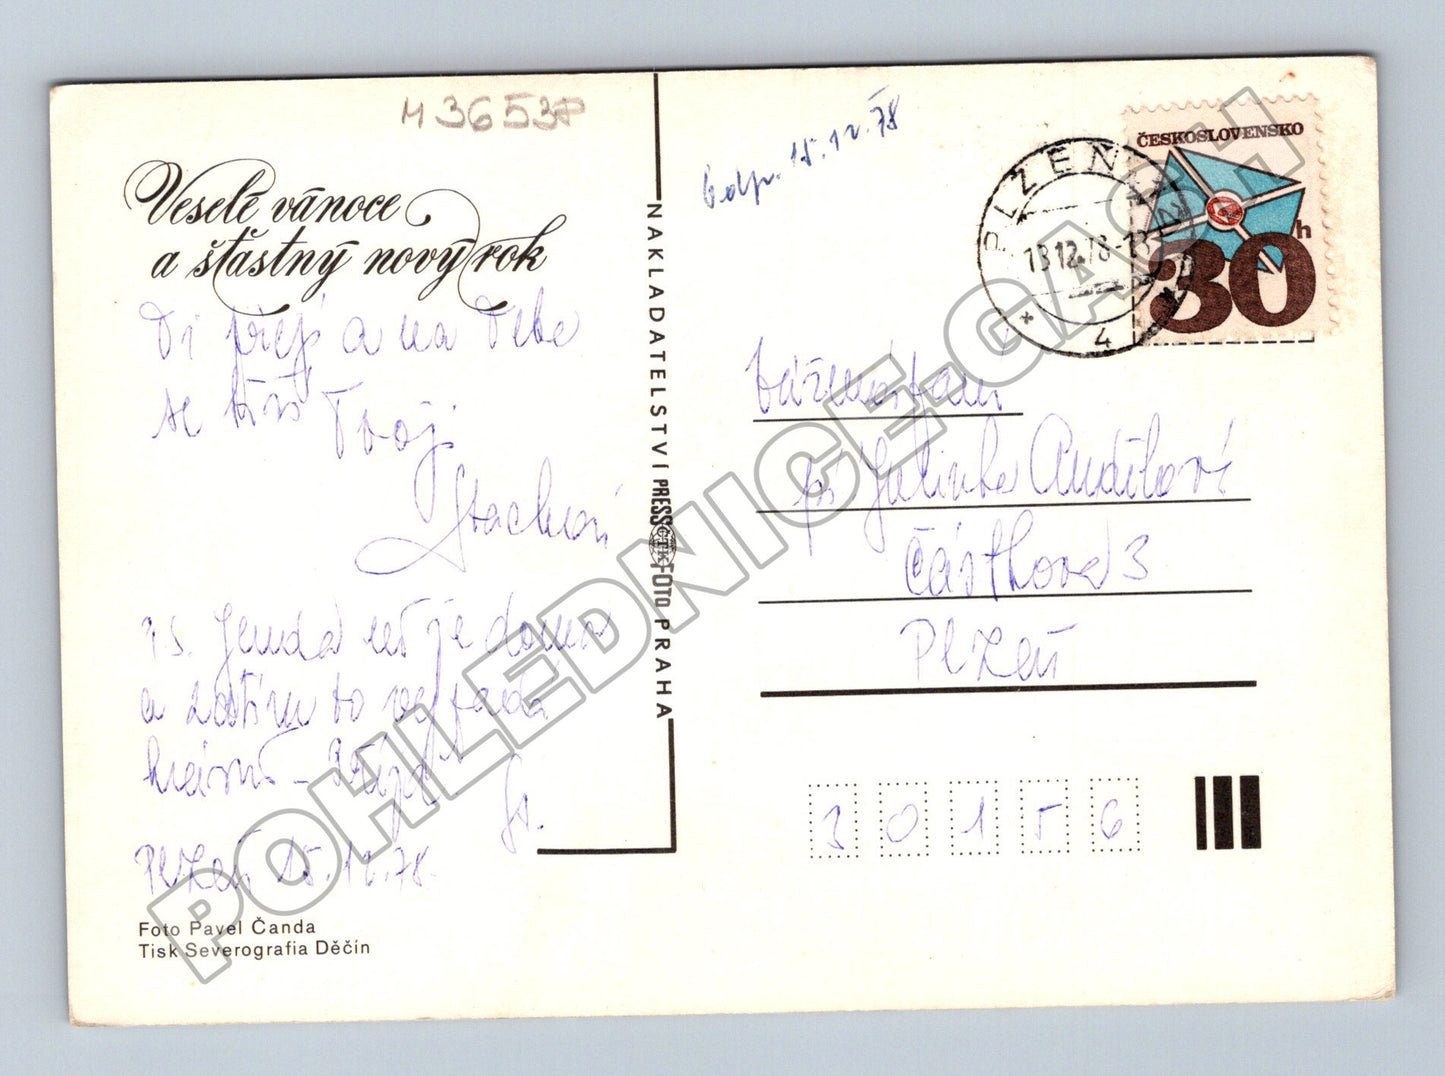 M 3653P
Veselé vánoce
a šťastný nový rok
Ti přejí a na Tebe
se těší Tvoji
PS. Jenda už je doma
a zatím to vypadá
krásně -
Plzeň 15.12.78.
Foto Pavel Čanda
Tisk Severografia Děčín
NAKLADATELSTVÍ PRESSFOTO PRAHA
ČTK
Odp. 15.12.78
PLZEŇ 1
13.12.78-18
* 4
ČESKOSLOVENSKO
30h
Vážená paní
Částkova 3
Plzeň
30156
POHLEDNICE-GASH